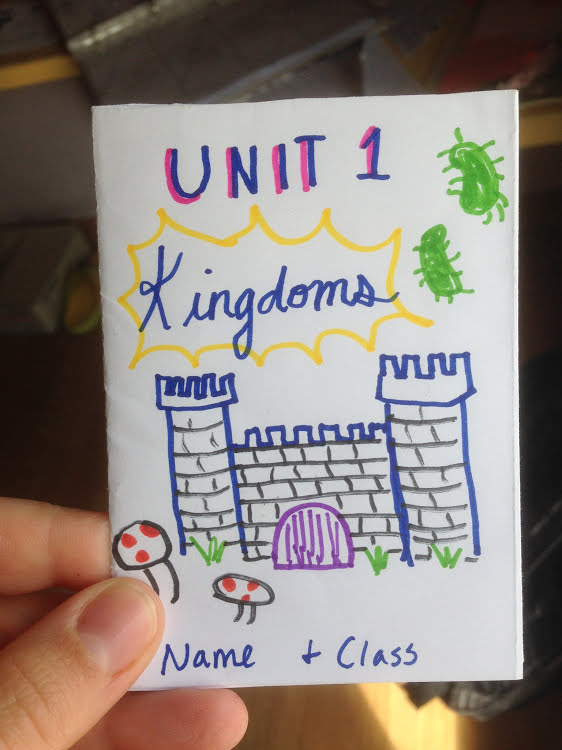 UNIT 1
Kingdoms
Name + Class